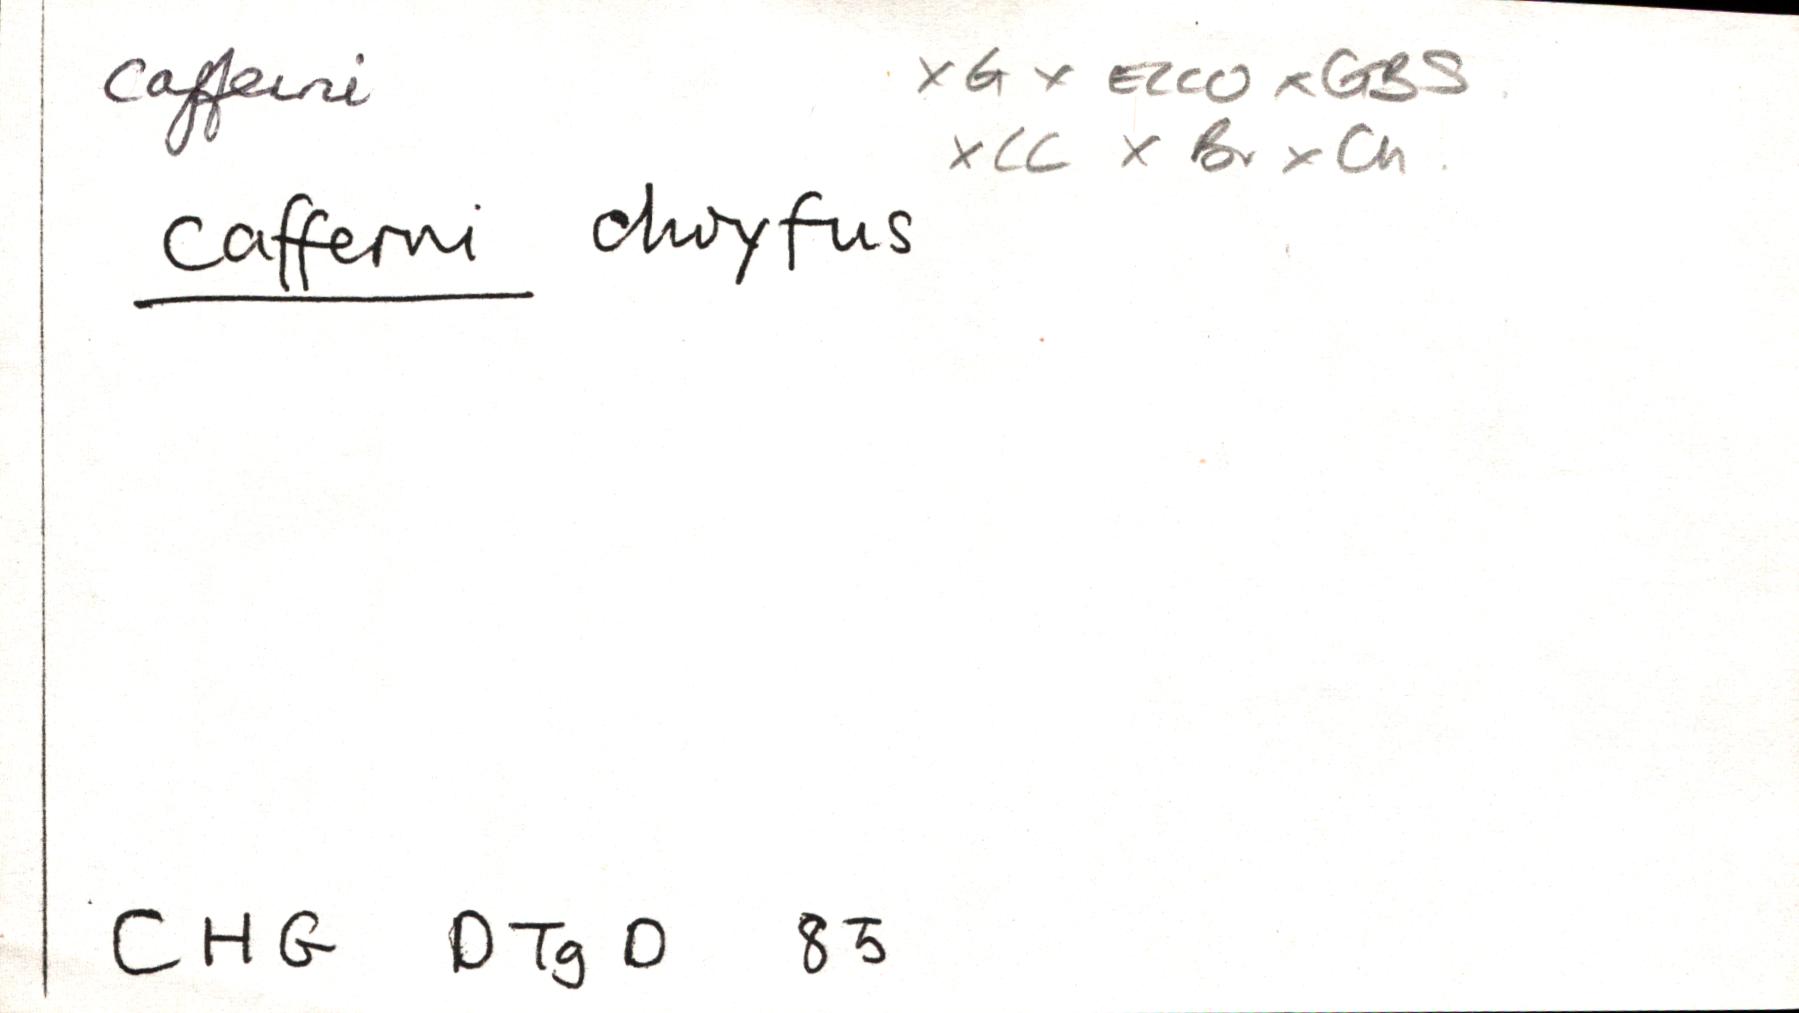 cafferni
×G × EZCO ×GBS
×CC × Br × Ch.
cafferni chwyfus
CHG DTgD 85